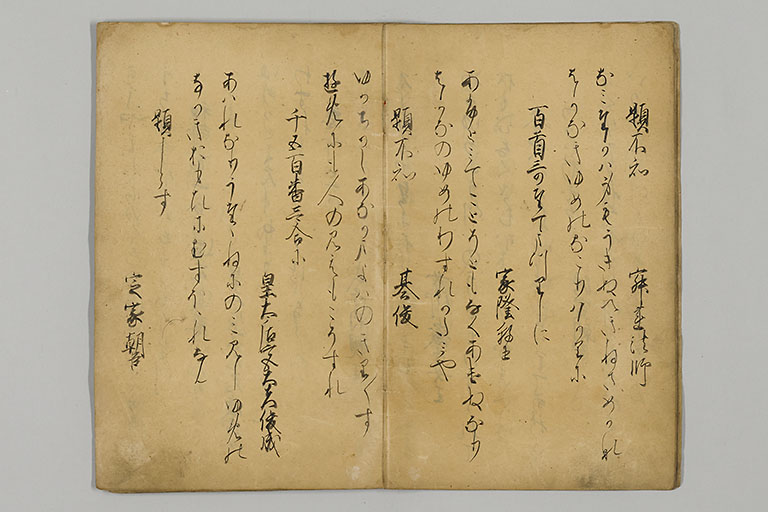 題不知　寂蓮法師
なみたかは身もうきぬへきねさめかな
はかなきゆめのなこりはかりに
百首哥たてまつりしに
家隆朝臣
あふとみてことそともなくあけぬなり
はかなのゆめのわすれかたみや
題不知　基俊
ゆかちかしあなかまよはのきり〱す
夢にも人のみえもこそすれ
千五百番哥合に
皇太后宮大夫俊成
あはれなりうたゝねにのみみしゆめの
なかきおもひにむすほゝれなん
題しらす
定家朝臣